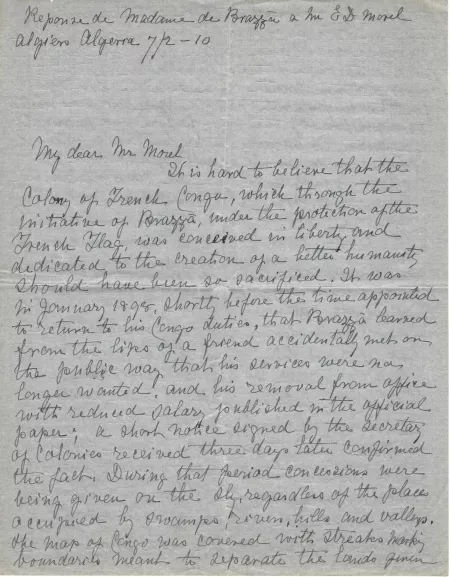 Reponse de Madame de Brazzà a Mr E D Morel
Algiers Algeria 7/2-10
My dear Mr Morel
It is hard to believe that the
Colony of French Congo, which through the
initiative of Brazzà, under the protection of the
French Flag, was conceived in liberty, and
dedicated to the creation of a better humanity
should have been so sacrificed. It was
in January 1898, shortly before the time appointed
to return to his Congo duties, that Brazzà learned
from the lips of a friend accidentally met on
the public way that his services were no
longer wanted, and his removal from office
with reduced salary published in the official
paper; a short notice signed by the secretary
of Colonies received three days later confirmed
the fact. During that period concessions were
being given on the sly, regardless of the place
occupied by swamps, rivers, hills and valleys.
The map of Congo was covered with streaks marking
boundaries meant to separate the lands given